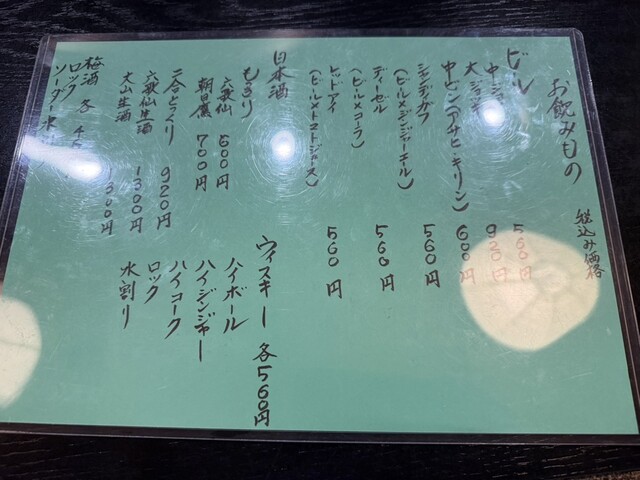 お飲みもの
税込み価格
ビール
中ジョッキ 560円
大ジョッキ 920円
中ビン(アサヒ・キリン) 600円
シャンディガフ
(ビール×ジンジャーエール) 560円
ディーゼル
(ビール×コーラ) 560円
レッドアイ
(ビール×トマトジュース) 560円
日本酒
もっきり
六歌仙 600円
朝日鷹 700円
二合とっくり 920円
六歌仙生酒 1300円
大山生酒 1300円
梅酒 各
ロック
ソーダ
ウィスキー 各560円
ハイボール
ハイジンジャー
ハイコーク
ロック
水割り